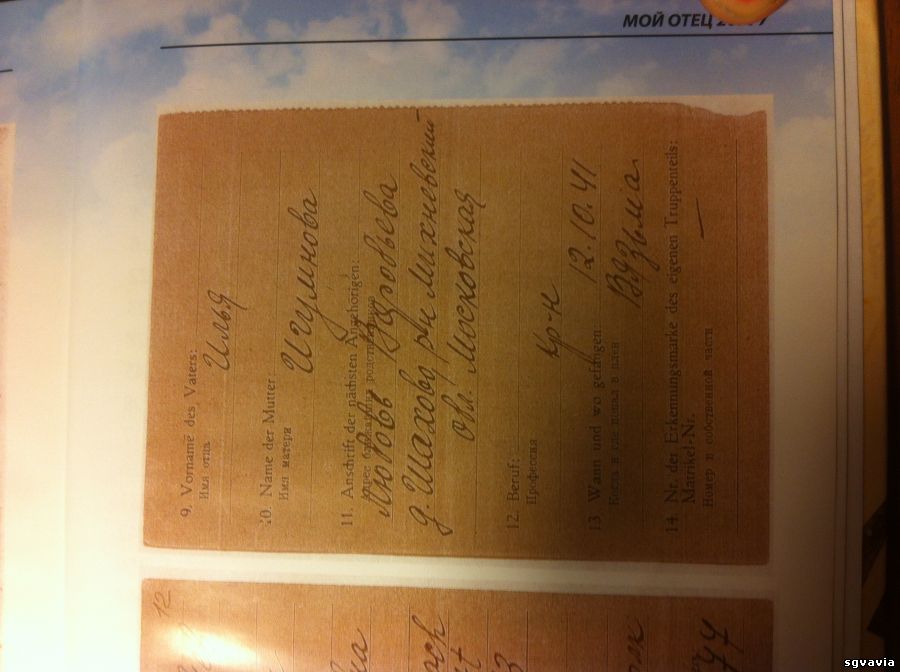 МОЙ ОТЕЦ
9. Vorname des Vaters:
Имя отца
Илья
10. Name der Mutter:
Имя матери
Игумнова
11. Anschrift der nächsten Angehörigen:
Адрес ближайших родственников
Любовь
д. Шахово, р-н Михневский
обл. Московская
12. Beruf:
Профессия
кр-н
13 Wann und wo gefangen
Когда и где попал в плен
12.10.41
Вязьма
14. Nr. der Erkennungsmarke des eigenen Truppenteils:
Matrikel-Nr.
Номер в собственной части
—
12
sgvavia